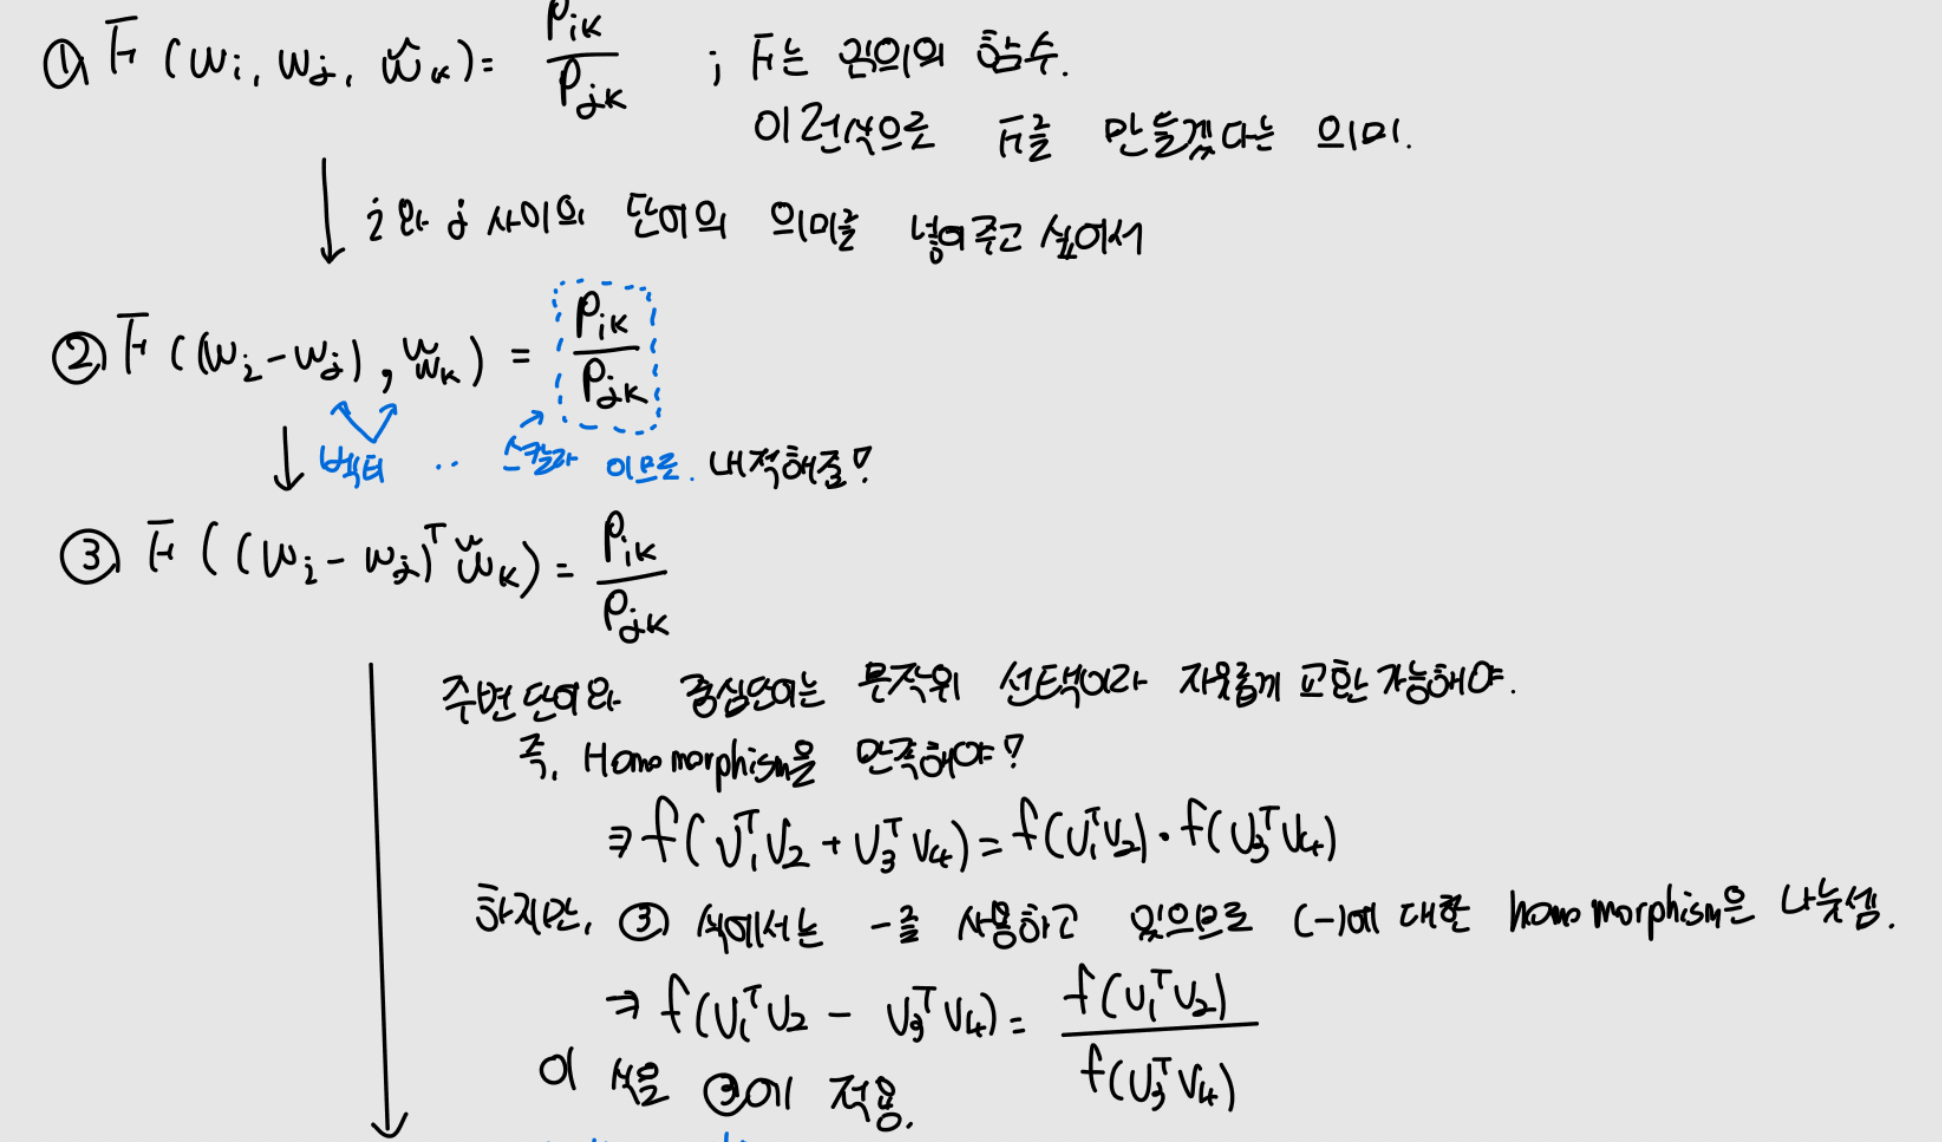 ① F(wi, wj, w̃k) = Pik / Pjk ; F는 임의의 함수.
이런식으로 F를 만들겠다는 의미.
i와 j 사이의 단어의 의미를 넣어주고 싶어서
② F((wi - wj), w̃k) = Pik / Pjk
벡터 ·· 스칼라 이므로. 내적해줌!
③ F((wi - wj)ᵀ w̃k) = Pik / Pjk
주변단어와 중심단어는 무작위 선택이라 자유롭게 교환 가능해야.
즉, Homomorphism을 만족해야!
⇒ f(V₁ᵀV₂ + V₃ᵀV₄) = f(V₁ᵀV₂) · f(V₃ᵀV₄)
하지만, ③ 식에서는 -를 사용하고 있으므로 (-)에 대한 homomorphism은 나눗셈.
⇒ f(V₁ᵀV₂ - V₃ᵀV₄) = f(V₁ᵀV₂) / f(V₃ᵀV₄)
이 식을 ③에 적용.